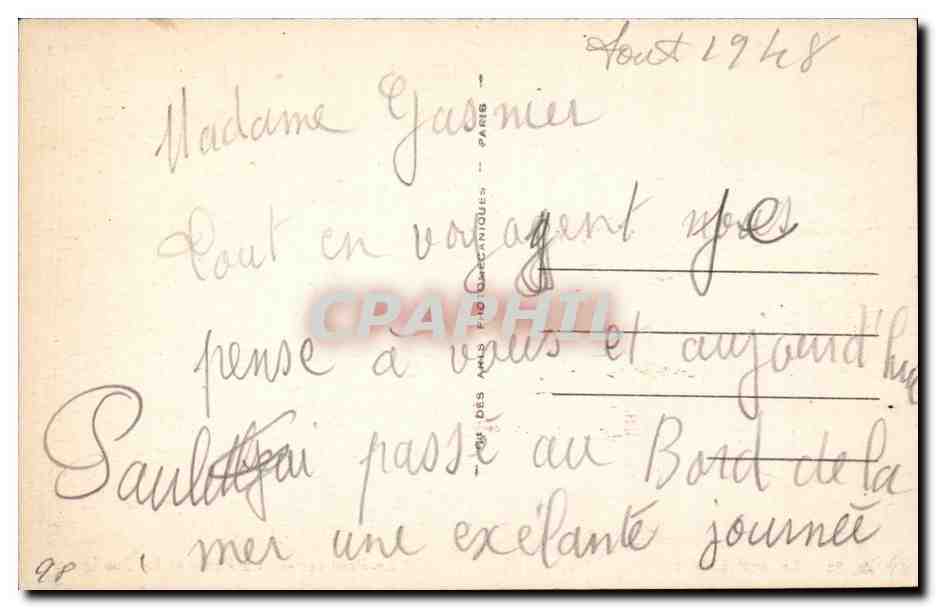 Aout 1948
Madame Gasnier
Tout en voyagent je
pense à vous et aujourd'hui
j'ai passé au Bord de la
mer une exélanté journée
Paul
98
DES ARTS PHOTOMÉCANIQUES — PARIS —
CPAPHIL